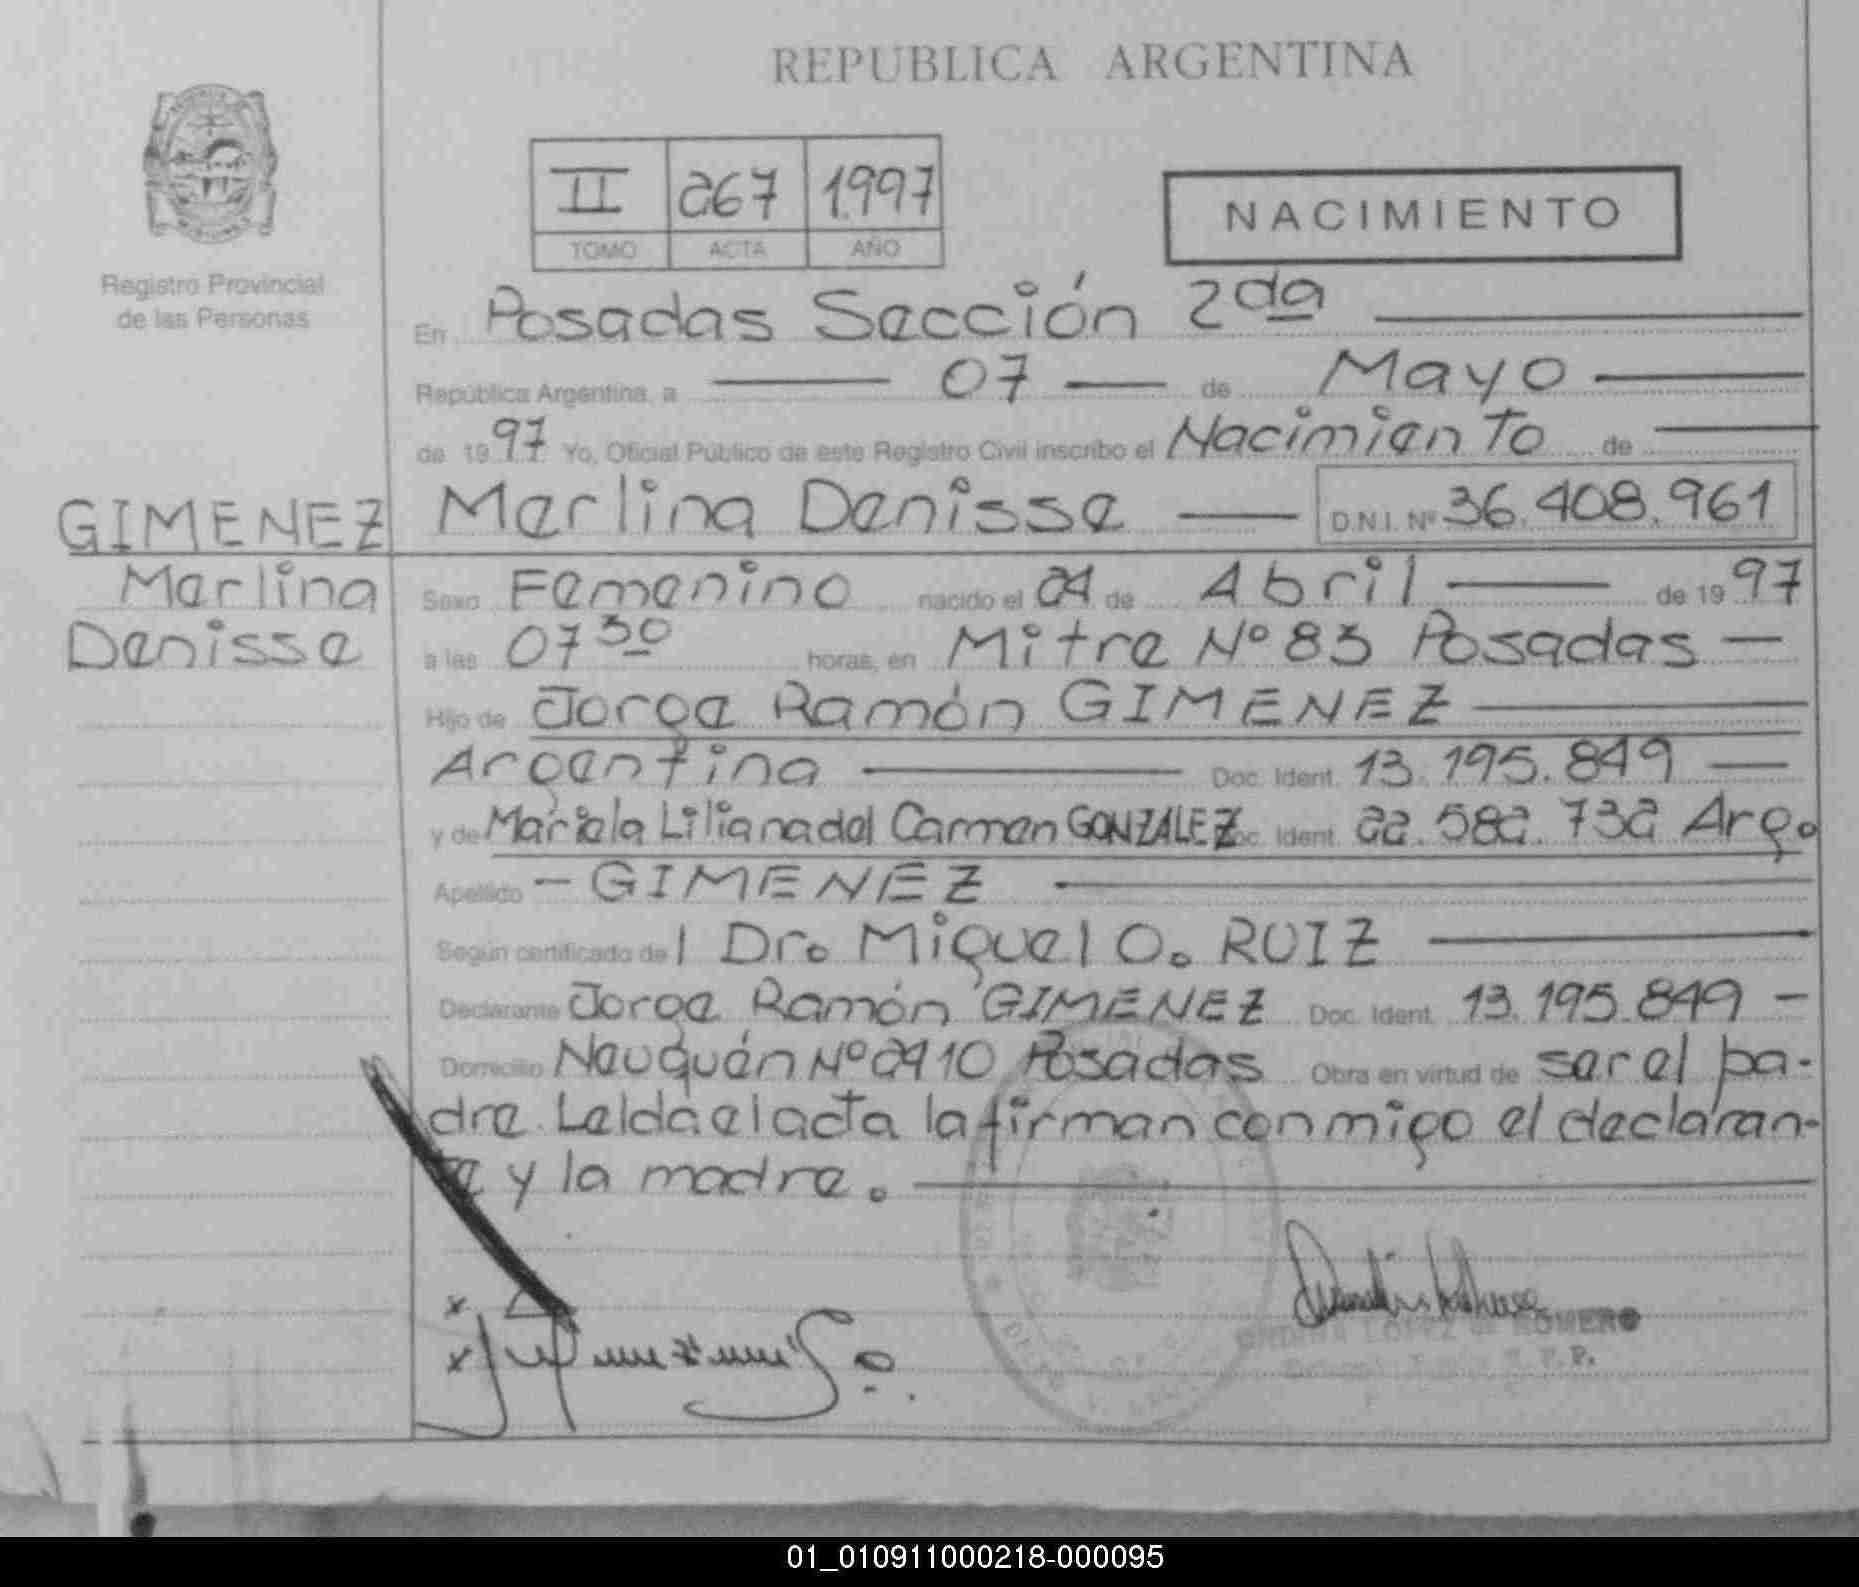 REPUBLICA ARGENTINA
II 267 1.997
TOMO ACTA AÑO
NACIMIENTO
Registro Provincial
de las Personas
En Posadas Sección 2da
República Argentina, a 07 de Mayo
de 1997 Yo, Oficial Público de este Registro Civil inscribo el Nacimiento de
GIMENEZ Merlina Denisse D.N.I. Nº 36.408.961
Merlina Sexo Femenino nacido el 24 de Abril de 1997
Denisse a las 07 30 horas, en Mitre Nº 83 Posadas
Hijo de Jorge Ramón GIMENEZ
Argentina Doc. Ident. 13.195.849
y de Mariela Liliana del Carmen GONZALEZ Doc. Ident. 22.582.732 Arg.
Apellido GIMENEZ
Según certificado de l Dr. Miguel O. RUIZ
Declarante Jorge Ramón GIMENEZ Doc. Ident. 13.195.849
Domicilio Neuquén Nº 2910 Posadas Obra en virtud de ser el pa-
dre. Leída el acta la firman conmigo el declaran-
te y la madre.
LOPEZ de ROMERO
01_010911000218-000095